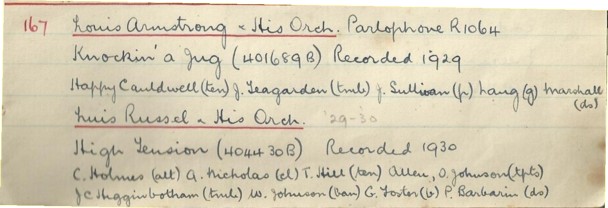 167 Louis Armstrong & His Orch. Parlophone R1064
Knockin' a Jug (401689B) Recorded 1929
Happy Cauldwell (ten) J. Teagarden (tmb) J. Sullivan (p) Lang (g) Marshall (ds)
Luis Russel & His Orch. '29-30
High Tension (404430B) Recorded 1930
C. Holmes (alt) A. Nicholas (cl) T. Hill (ten) Allen, O. Johnson (tpts)
J C Higginbotham (tmb) W. Johnson (ban) G. Foster (b) P. Barbarin (ds)